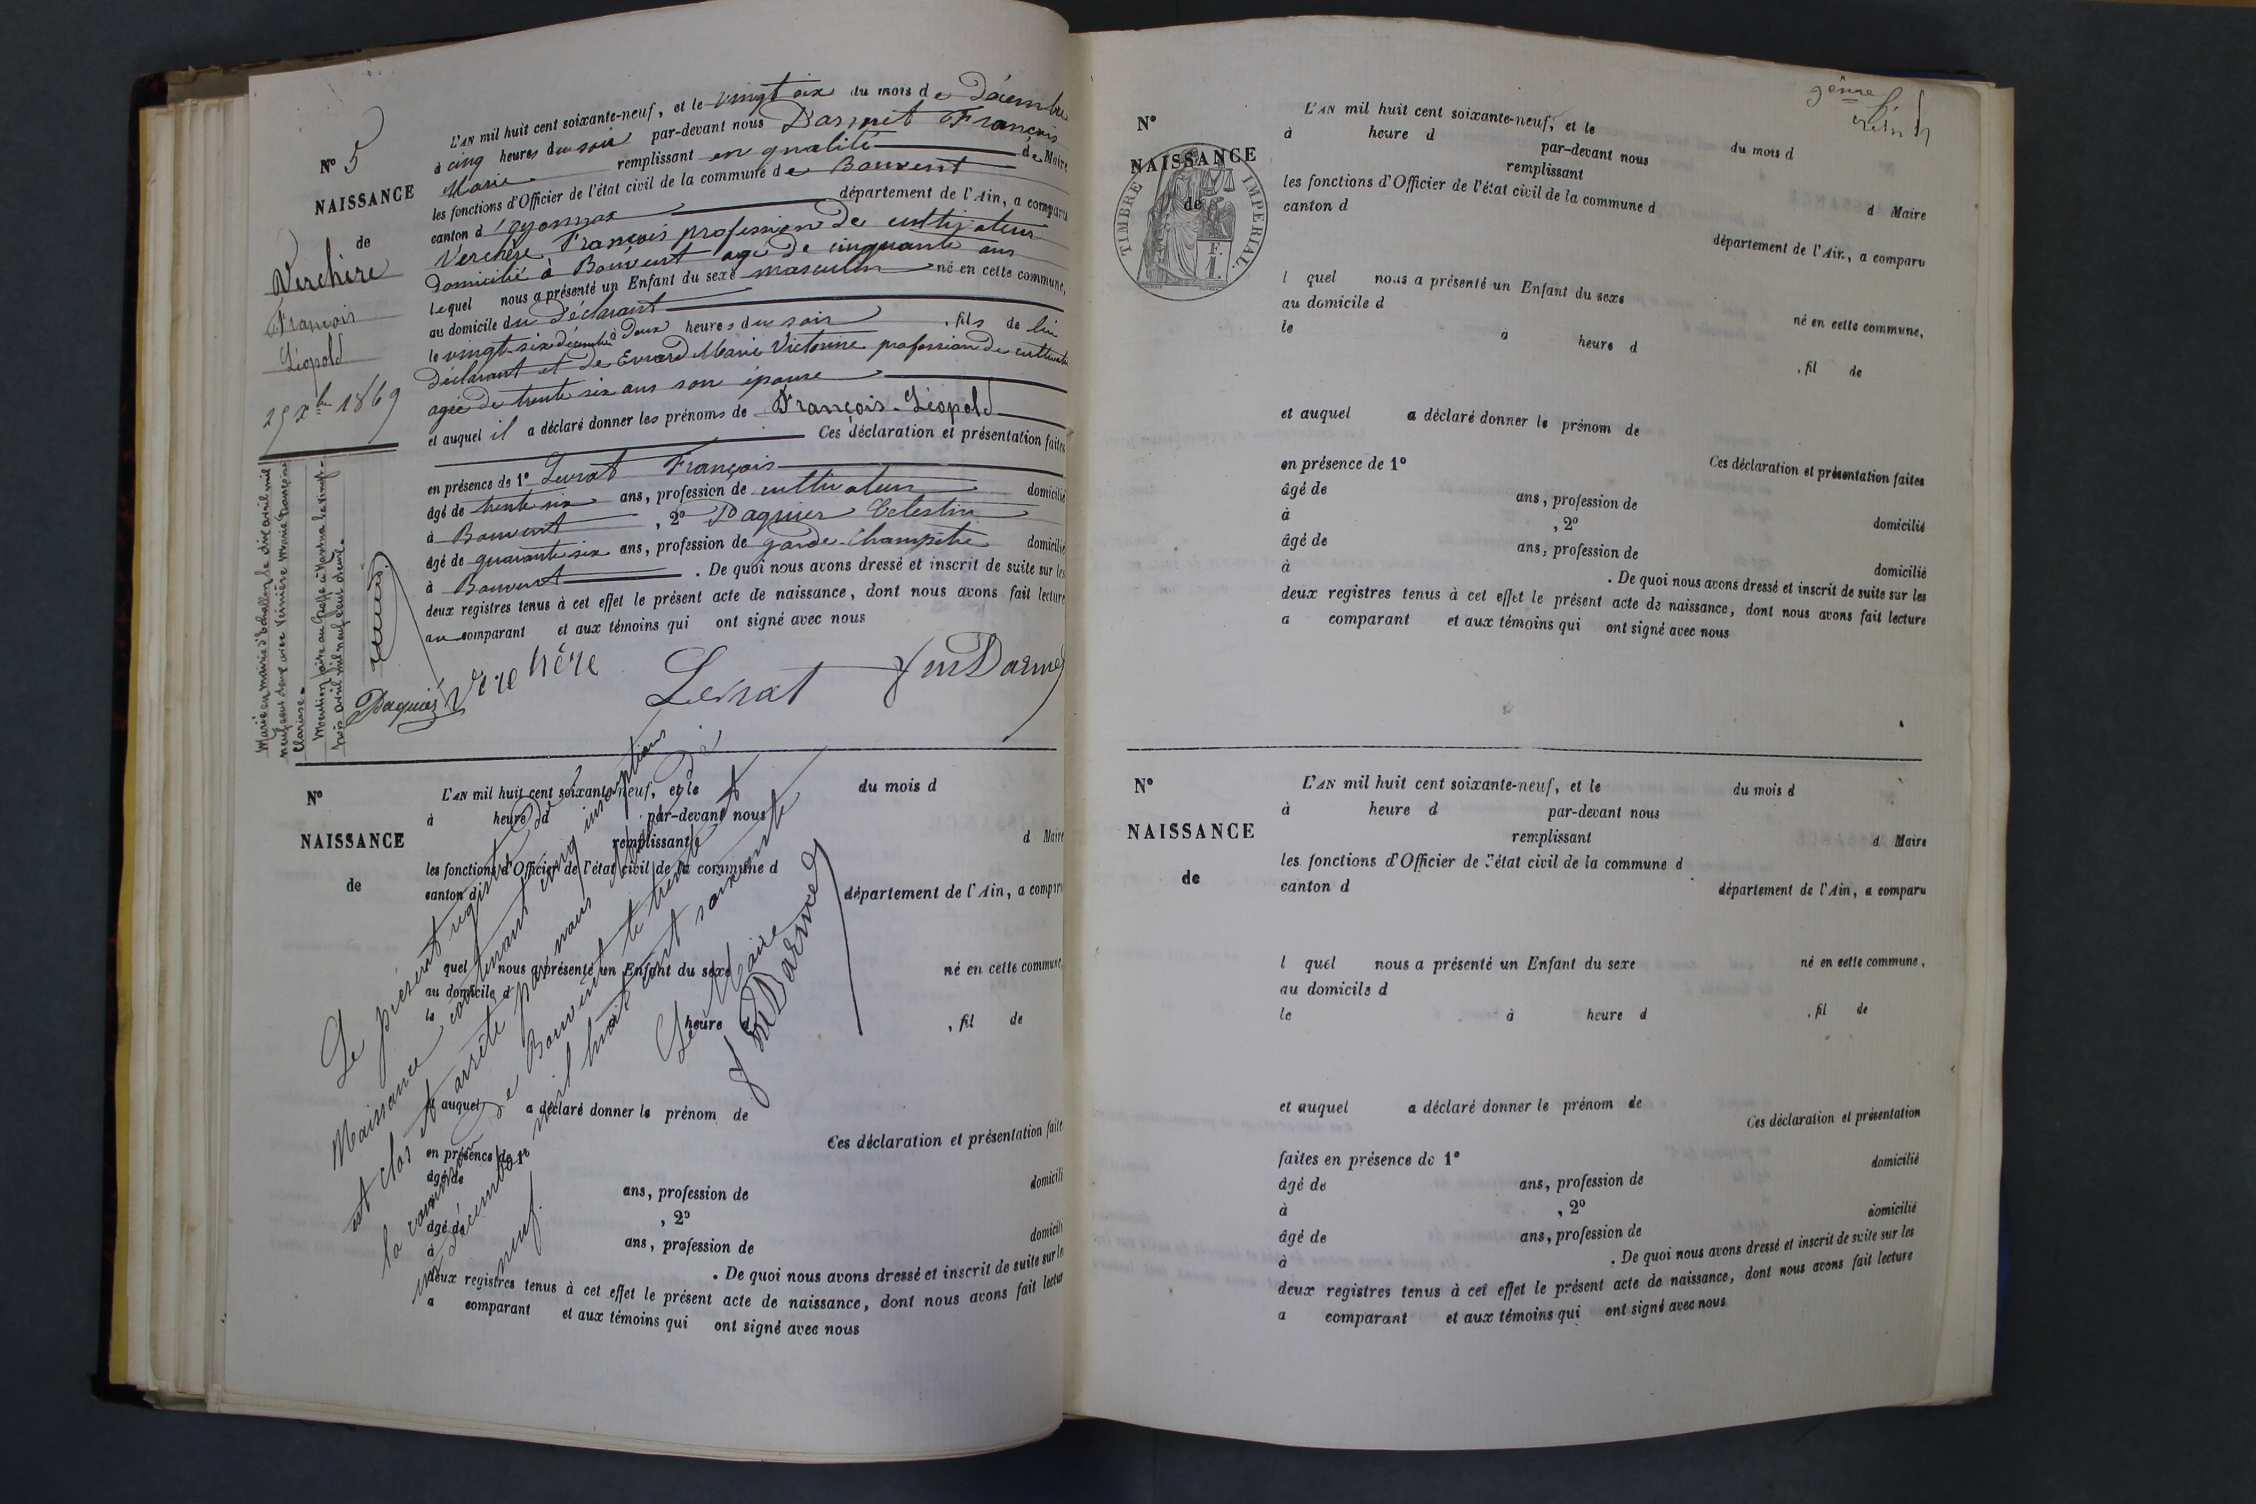 N° 5
NAISSANCE
de
Verchère
François
Léopold
25 Xbre 1869
L'AN mil huit cent soixante-neuf, et le vingt six du mois de Décembre
à cinq heures du soir par-devant nous Darmet François
Marie remplissant en qualité de Maire
les fonctions d'Officier de l'état civil de la commune de Bouvent
canton d'Oyonnax département de l'Ain, a comparu
Verchère François profession de cultivateur
domicilié à Bouvent agé de cinquante ans
lequel nous a présenté un Enfant du sexe masculin né en cette commune,
au domicile du déclarant
le vingt-six décembre à Deux heures du soir, fils de lui
déclarant et de Evrard Marie Victorine profession de cultivateur
agée de trente six ans son épouse
et auquel il a déclaré donner les prénoms de François-Léopold
Ces déclaration et présentation faites
en présence de 1° Levrat François
âgé de trente six ans, profession de cultivateur domicilié
à Bouvent, 2° Paquier Celestin
âgé de quarante six ans, profession de garde-champêtre domicilié
à Bouvent. De quoi nous avons dressé et inscrit de suite sur les
deux registres tenus à cet effet le présent acte de naissance, dont nous avons fait lecture
au comparant et aux témoins qui ont signé avec nous
Paquier Verchère Levrat fm Darmet
Marié en mairie d'Echallon le dix avril mil
neuf cent deux avec
Marie Françoise
Clarisse.
Mention faite au Greffe à Nantua le vingt-
trois avril mil neuf cent deux.
N°
NAISSANCE
de
L'AN mil huit cent soixante-neuf, et le du mois d
à heure d par-devant nous
remplissant d Maire
les fonctions d'Officier de l'état civil de la commune d
canton d département de l'Ain, a comparu
l quel nous a présenté un Enfant du sexe né en cette commune,
au domicile d
le à heure d, fil de
et auquel a déclaré donner le prénom de
Ces déclaration et présentation faites
en présence de 1°
âgé de ans, profession de domicilié
à, 2°
âgé de ans, profession de domicilié
à. De quoi nous avons dressé et inscrit de suite sur les
deux registres tenus à cet effet le présent acte de naissance, dont nous avons fait lecture
a comparant et aux témoins qui ont signé avec nous
Le présent registre de
Naissance contenant cinq inscriptions
est clos et arrêté par nous Maire de
la commune de Bouvent le trente et
un décembre mil huit cent soixante
neuf.
Le Maire
fm Darmet
N°
NAISSANCE
de
TIMBRE IMPERIAL.
1 F.
L'AN mil huit cent soixante-neuf, et le du mois d
à heure d par-devant nous
remplissant d Maire
les fonctions d'Officier de l'état civil de la commune d
canton d département de l'Ain, a comparu
l quel nous a présenté un Enfant du sexe né en cette commune,
au domicile d
le à heure d, fil de
et auquel a déclaré donner le prénom de
Ces déclaration et présentation faites
en présence de 1°
âgé de ans, profession de domicilié
à, 2°
âgé de ans, profession de domicilié
à. De quoi nous avons dressé et inscrit de suite sur les
deux registres tenus à cet effet le présent acte de naissance, dont nous avons fait lecture
a comparant et aux témoins qui ont signé avec nous
N°
NAISSANCE
de
L'AN mil huit cent soixante-neuf, et le du mois d
à heure d par-devant nous
remplissant d Maire
les fonctions d'Officier de l'état civil de la commune d
canton d département de l'Ain, a comparu
l quel nous a présenté un Enfant du sexe né en cette commune,
au domicile d
le à heure d, fil de
et auquel a déclaré donner le prénom de
Ces déclaration et présentation
faites en présence de 1°
âgé de ans, profession de domicilié
à, 2°
âgé de ans, profession de domicilié
à. De quoi nous avons dressé et inscrit de suite sur les
deux registres tenus à cet effet le présent acte de naissance, dont nous avons fait lecture
a comparant et aux témoins qui ont signé avec nous